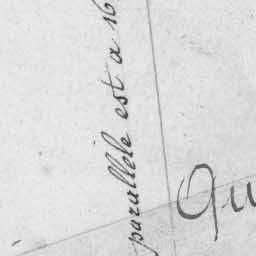 parallèle est à 16
Qu